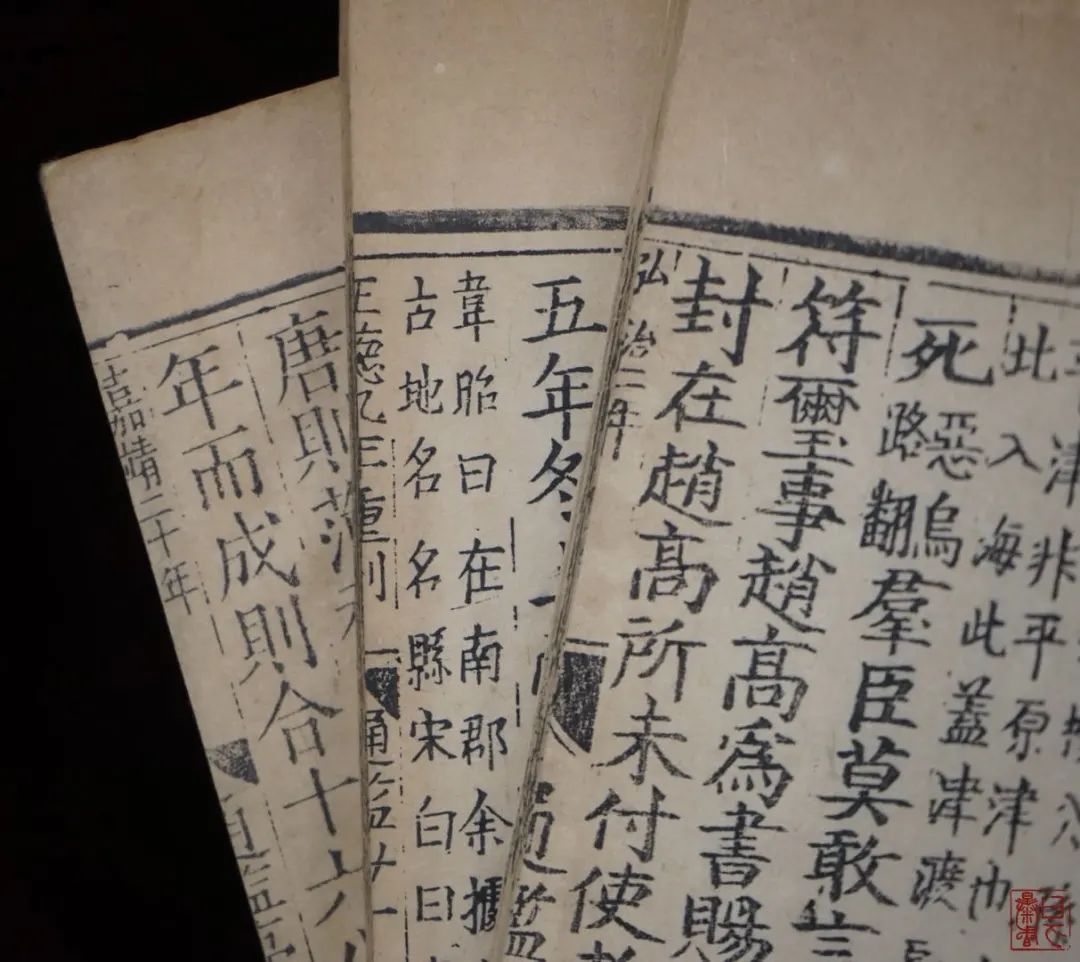 津非平原津也
此入海此蓋津渡
死惡烏
路翻羣臣莫敢言
符璽事趙高爲書賜
封在趙高所未付使
弘治二年
通鑑
五年冬
韋昭曰在南郡余據
古地名名縣宋白曰
正德九年重刊
通鑑廿一
唐則范
年而成則合十六代
嘉靖二十年